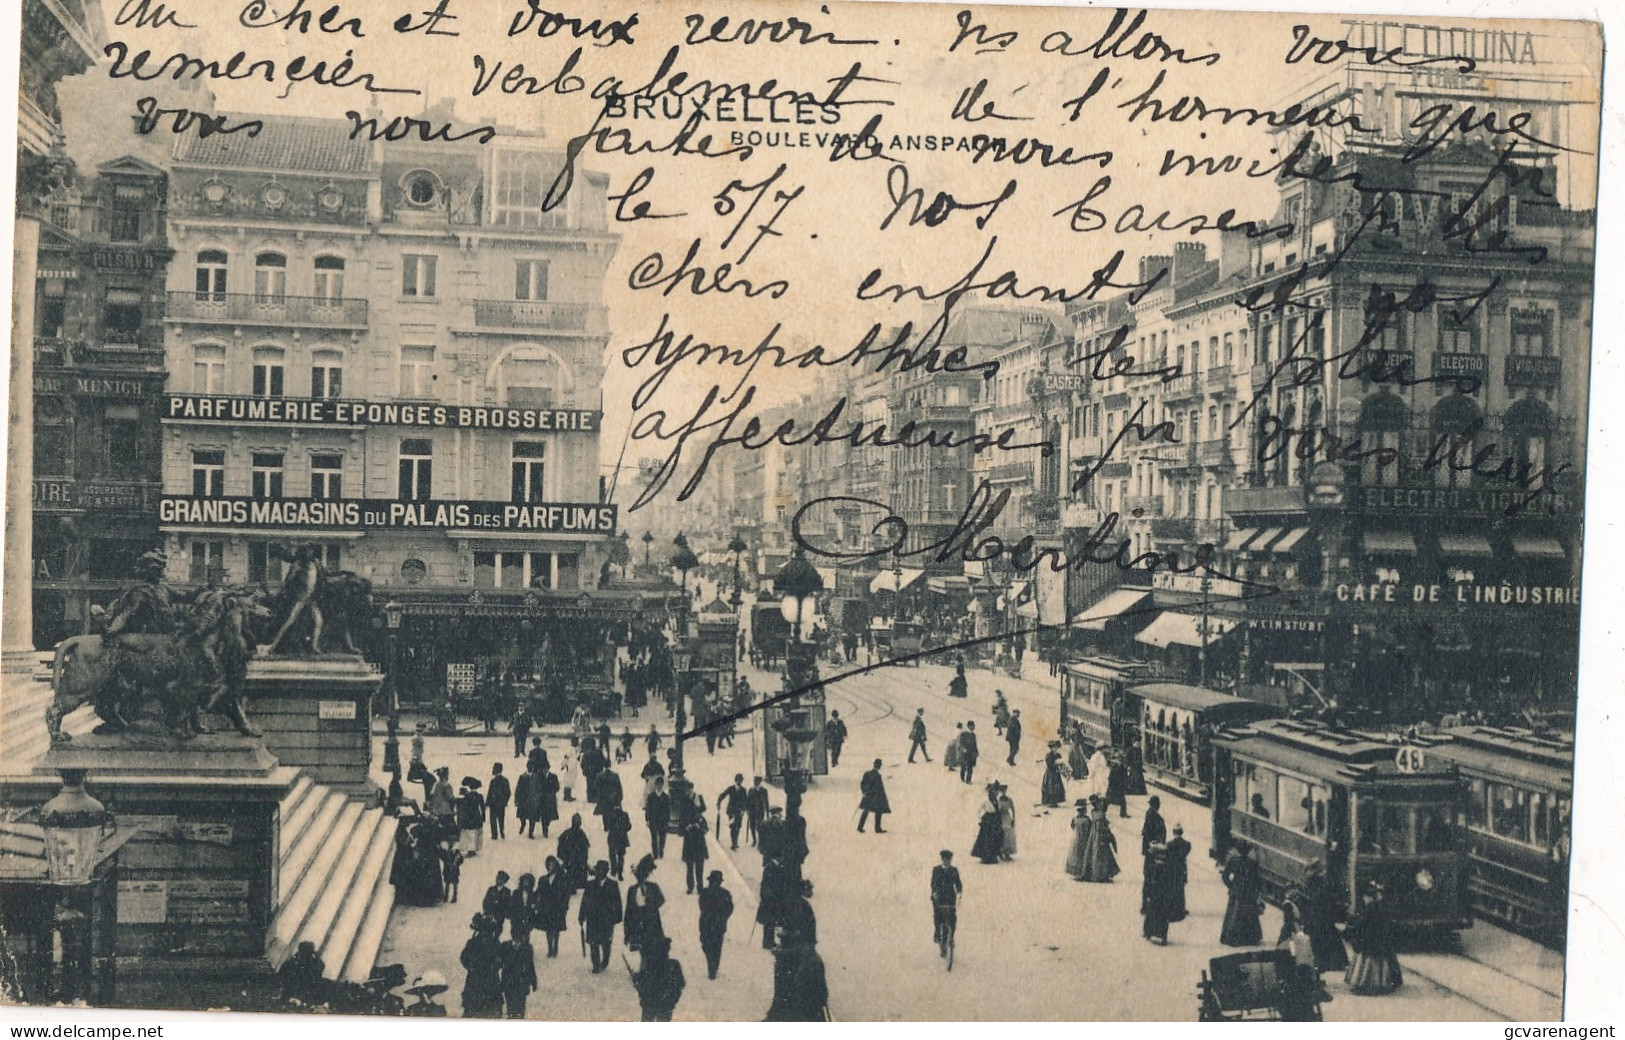 du cher et doux revoir. Ns allons vous
remercier verbalement de l'honneur que
BRUXELLES
vous nous faites de nous inviter pr
BOULEVARD ANSPACH
le 5/7. Nos baisers pr les
chers enfants et nos
sympathies les plus
affectueuses pr vous deux
Martine
ZUCCO QUINA
BOVRIL
PILSNER
MUNICH
PARFUMERIE-EPONGES-BROSSERIE
GRANDS MAGASINS DU PALAIS DES PARFUMS
CASTER
ELECTRO
VIGUEUR
ELECTRO-VIGUEUR
CAFÉ DE L'INDUSTRIE
WEINSTUBE
48
gcvarenagent
delcampe.net